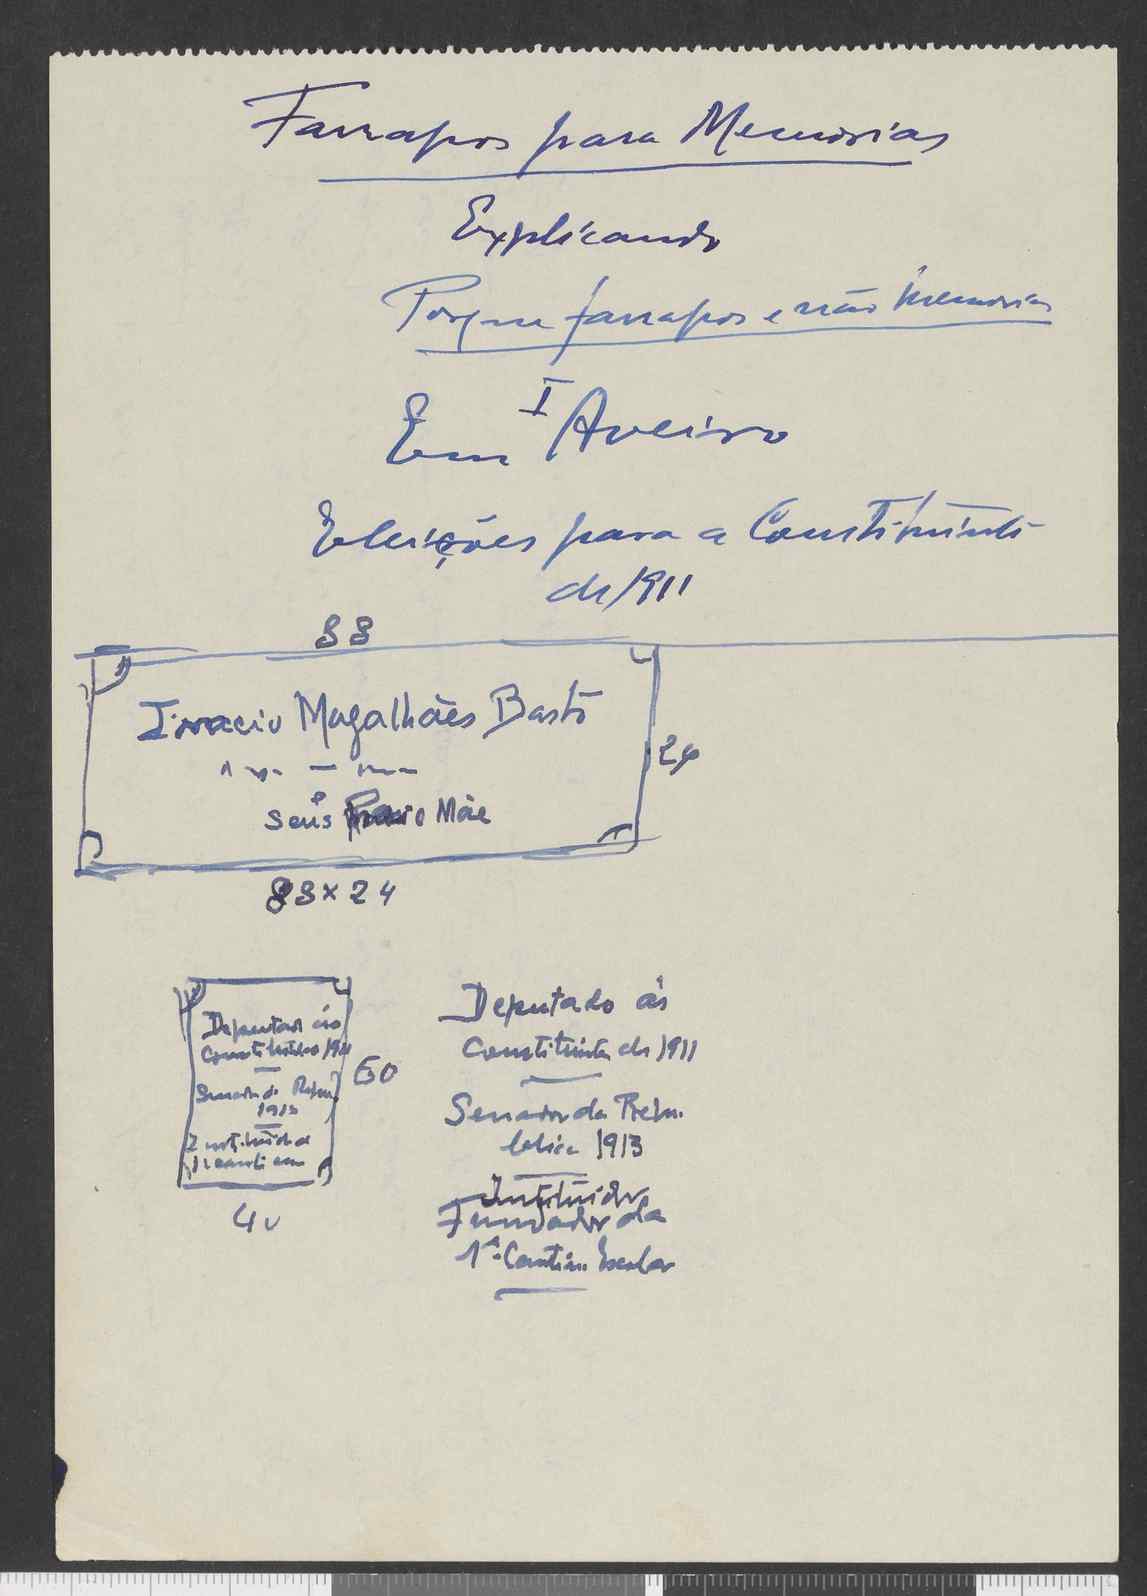 Farrapos para Memorias
Explicando
Porque farrapos e não memorias
I
Em Aveiro
Eleições para a Constituinte
de 1911
83
Magalhães Basto
24
seus Mãe
83 x 24
Deputado ás
Constituintes 1911
Senador da Repu
1913
Instituidor
1ª cantina
60
40
Deputado ás
Constituintes de 1911
Senador da Repu.
blica 1913
Instituidor
Fundador da
1ª Cantina Escolar